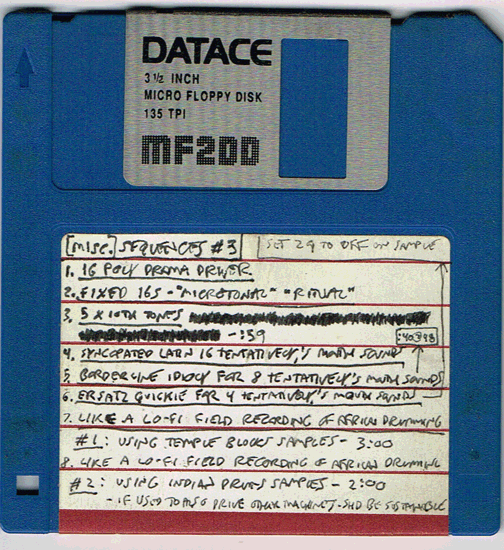 DATACE
3 1/2 INCH
MICRO FLOPPY DISK
135 TPI
MF2DD
[MISC.] SEQUENCES #3
SET 29 TO OFF ON SAMPLE
1. 16 POLY DRAMA DRIVER
2. FIXED 16S - "MICROTONAL" "RITUAL"
3. 5 X 10TH TONES
- :39
:40 @ 98
4. SYNCOPATED LATIN 16 TENTATIVELY'S MOUTH SOUND
5. BORDERLINE IDIOCY FOR 8 TENTATIVELY'S MOUTH SOUNDS
6. ERSATZ QUICKIE FOR 4 TENTATIVELY'S MOUTH SOUNDS
7. LIKE A LO-FI FIELD RECORDING OF AFRICAN DRUMMING
#1: USING TEMPLE BLOCKS SAMPLES - 3:00
8. LIKE A LO-FI FIELD RECORDING OF AFRICAN DRUMMING
#2: USING INDIAN DRUMS SAMPLES - 2:00
- IF USED TO DRIVE OTHER MACHINES - SHD BE